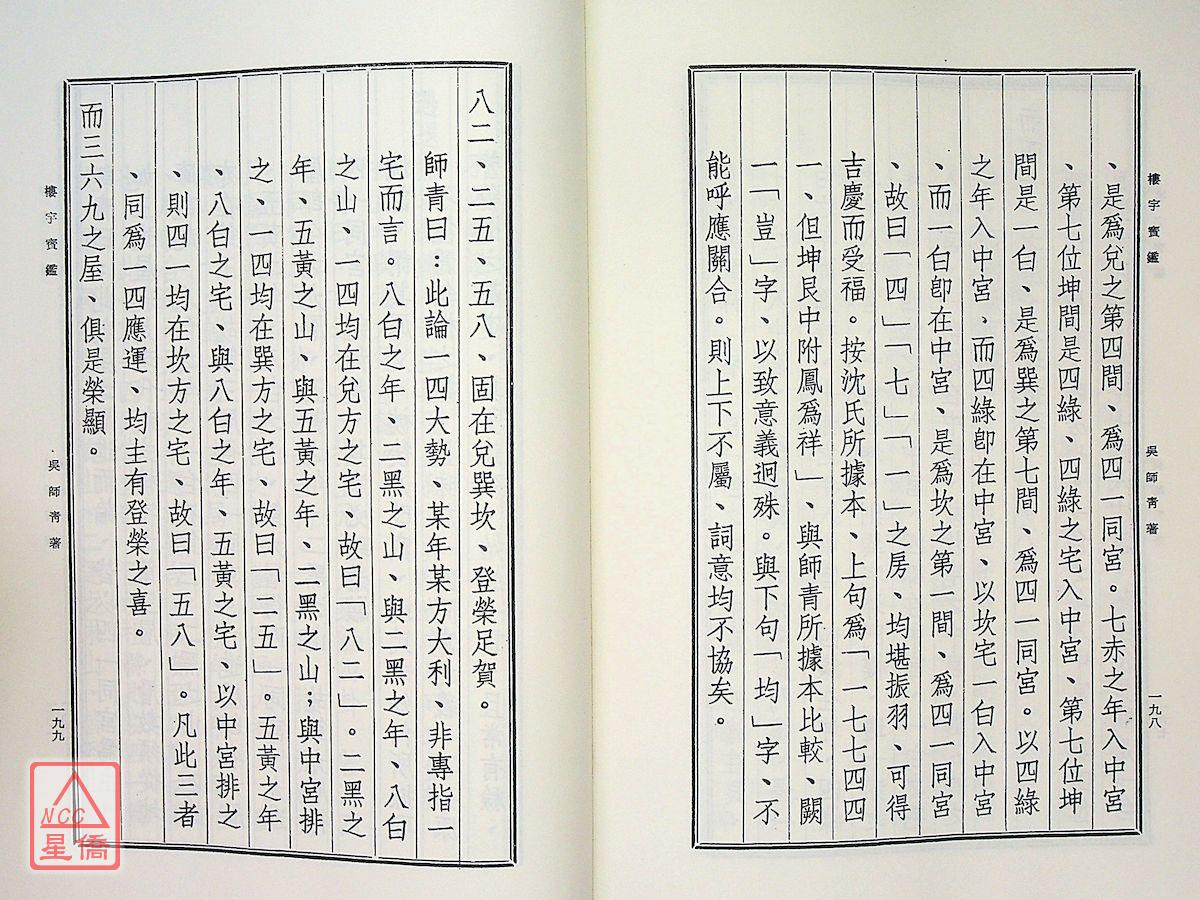 樓宇寶鑑
吳師青著
一九八
、是爲兌之第四間、爲四一同宮。七赤之年入中宮
、第七位坤間是四綠、四綠之宅入中宮、第七位坤
間是一白、是爲巽之第七間、爲四一同宮。以四綠
之年入中宮、而四綠卽在中宮、以坎宅一白入中宮
、而一白卽在中宮、是爲坎之第一間、爲四一同宮
、故曰「四」「七」「一」之房、均堪振羽、可得
吉慶而受福。按沈氏所據本、上句爲「一七七四四
一、但坤艮中附鳳爲祥」、與師青所據本比較、闕
一「豈」字、以致意義迥殊。與下句「均」字、不
能呼應關合。則上下不屬、詞意均不協矣。
八二、二五、五八、固在兌巽坎、登榮足賀。
師青曰：此論一四大勢、某年某方大利、非專指一
宅而言。八白之年、二黑之山、與二黑之年、八白
之山、一四均在兌方之宅、故曰「八二」。二黑之
年、五黃之山、與五黃之年、二黑之山；與中宮排
之、一四均在巽方之宅、故曰「二五」。五黃之年
、八白之宅、與八白之年、五黃之宅、以中宮排之
、則四一均在坎方之宅、故曰「五八」。凡此三者
、同爲一四應運、均主有登榮之喜。
而三六九之屋、俱是榮顯。
樓宇寶鑑
吳師青著
一九九
NCC
星僑